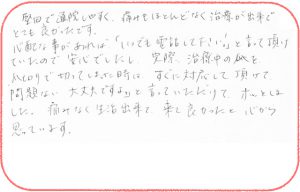 堅田で通院しやすく、痛みもほとんどなく治療が出来て
とても良かったです。
心配な事があれば「いつでも電話して下さい」と言って頂け
ていたので安心でしたし、実際、治療中の
で切ってしまった時に すぐに対応して頂けて
問題ない 大丈夫ですよ」と言っていただけて ホッとしま
した。痛みなく生活出来て、来て良かったと心から
思っています。